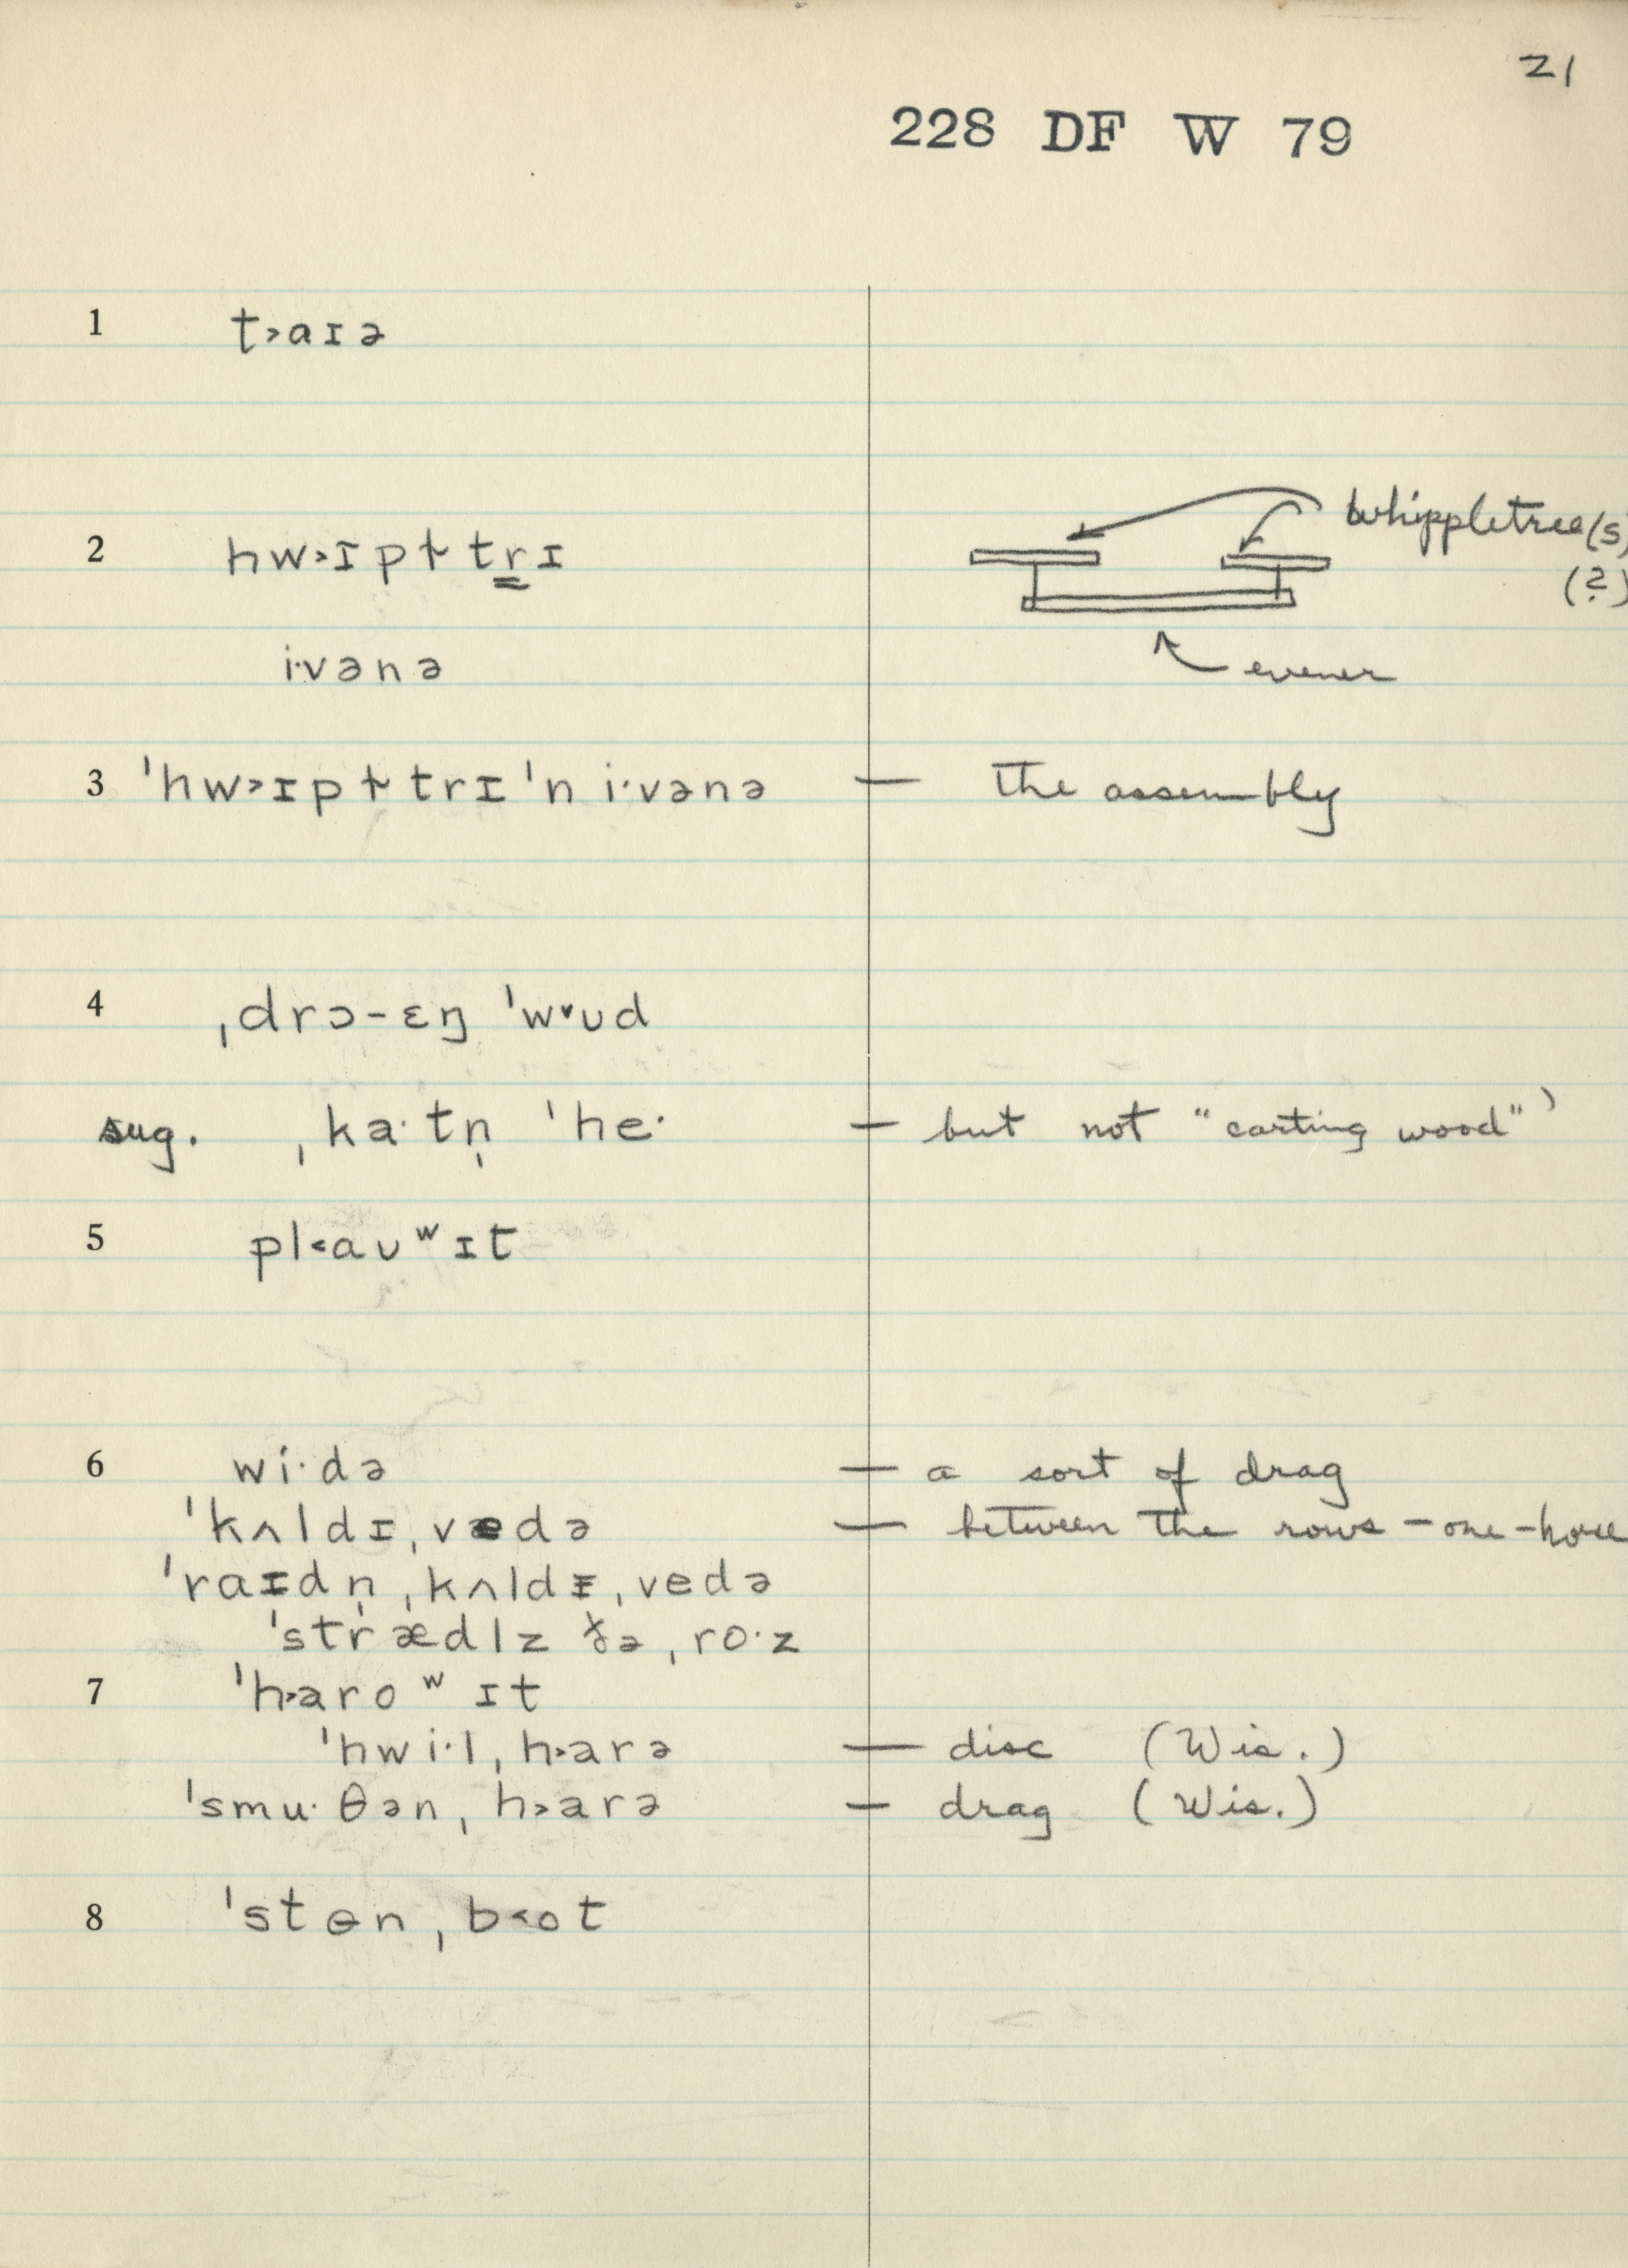 21
228 DF W 79
1 t˃aɪə
whippletree(s)
2 hw˃ɪpɫtrɪ
(?)
i·vənə
evener
3 ˈhw˃ɪpɫtrɪ ˈn i·vənə — the assembly
4 ˌdrɔ-ɛŋ ˈw˅ʊd
sug. ˌka·tn̩ ˈhe· — but not "carting wood")
5 pl˂aʊʷɪt
6 wi·də — a sort of drag
ˈkʌldɪˌvedə — between the rows – one-horse
ˈraɪdn̩ ˌkʌldɪˌvedə
ˈstrædlz ðə ˌro·z
7 ˈh˃aroʷɪt
ˈhwi·lˌh˃arə — disc (Wis.)
ˈsmu·θənˌh˃arə — drag (Wis.)
8 ˈstɵnˌb˂ot